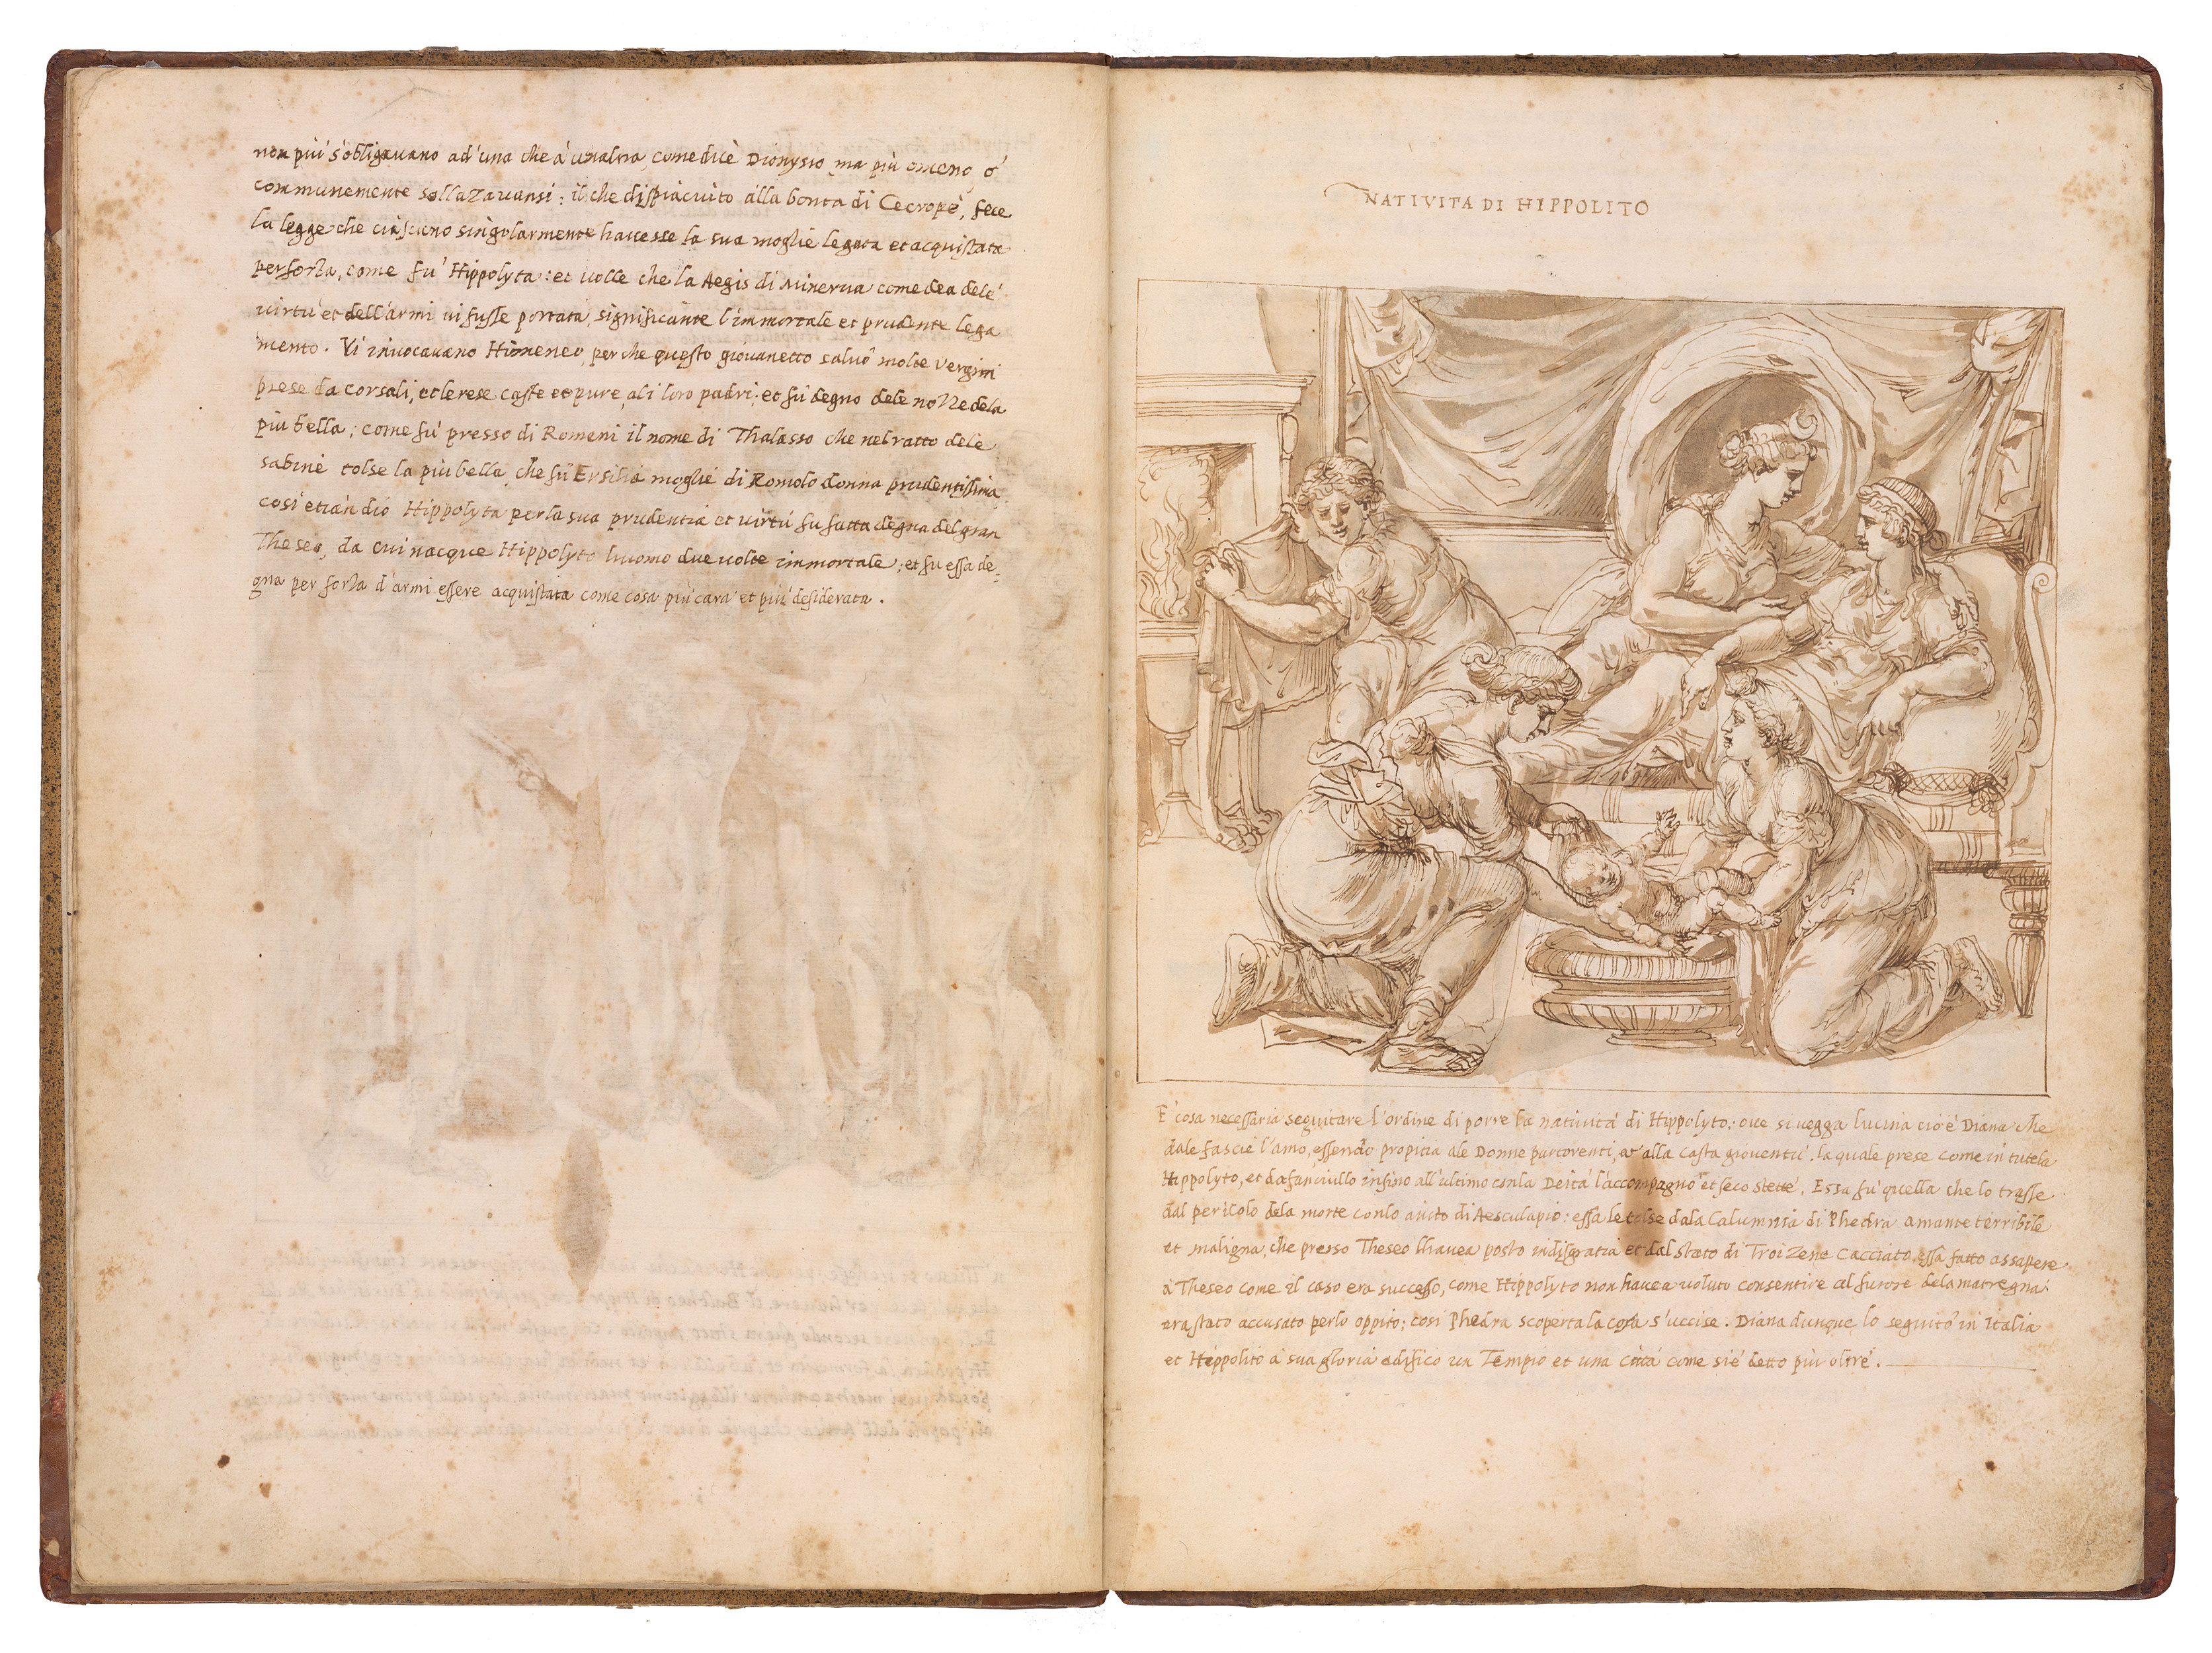 non più s'obligavano ad'una che à un'altra, come dice Dionysio, ma più omeno, ó
communemente sollazavansi: il che dispiaciuto alla bonta di Cecrope, fece
la legge che ciascuno singolarmente havesse la sua moglie legata et acquistata
per forza, come fu' Hippolyta: et volle che la Aegis di Minerva come dea dele
virtù et dell'armi vi fusse portata, significante l'immortale et prudente lega
mento. Vi invocavano Himeneo, perche questo giovanetto salvò molte Vergini
prese da corsali, et le rese caste et pure, ali loro padri: et fù degno dele nozze dela
più bella; come fu' presso di Romani il nome di Thalasso che nel ratto dele
sabine tolse la più bella, che fù Ersilia moglie di Romolo donna prudentissima,
cosi etiandio Hippolyta per la sua prudentia et virtù fu fatta degna del gran
Theseo, da cui nacque Hippolyto huomo due volte immortale; et fu essa de=
gna per forza d'armi essere acquistata come cosa più cara et più desiderata.
5
NATIVITA DI HIPPOLITO
E' cosa necessaria seguitare l'ordine di porre la natività di Hippolyto: ove si vegga lucina cioè Diana che
dale fascie l'amo, essendo propitia ale Donne partorenti, et alla casta gioventù, la quale prese come in tutela
Hippolyto, et da fanciullo infino all'ultimo con la Deità l'accompagnò et seco stette. Essa fù quella che lo trasse
dal pericolo dela morte con lo aiuto di Aesculapio: essa le tolse dala Calumnia di Phedra amante terribile
et maligna, che presso Theseo l'havea posto in disgratia et dal Stato di Troizene cacciato. essa fatto assapere
à Theseo come il caso era successo, come Hippolyto non havea voluto consentire al furore dela matregna:
era stato accusato per lo oppito; cosi Phedra scoperta la cosa s'uccise. Diana dunque lo seguitò in Italia
et Hippolito à sua gloria edifico un Tempio et una città come si è detto più oltre.